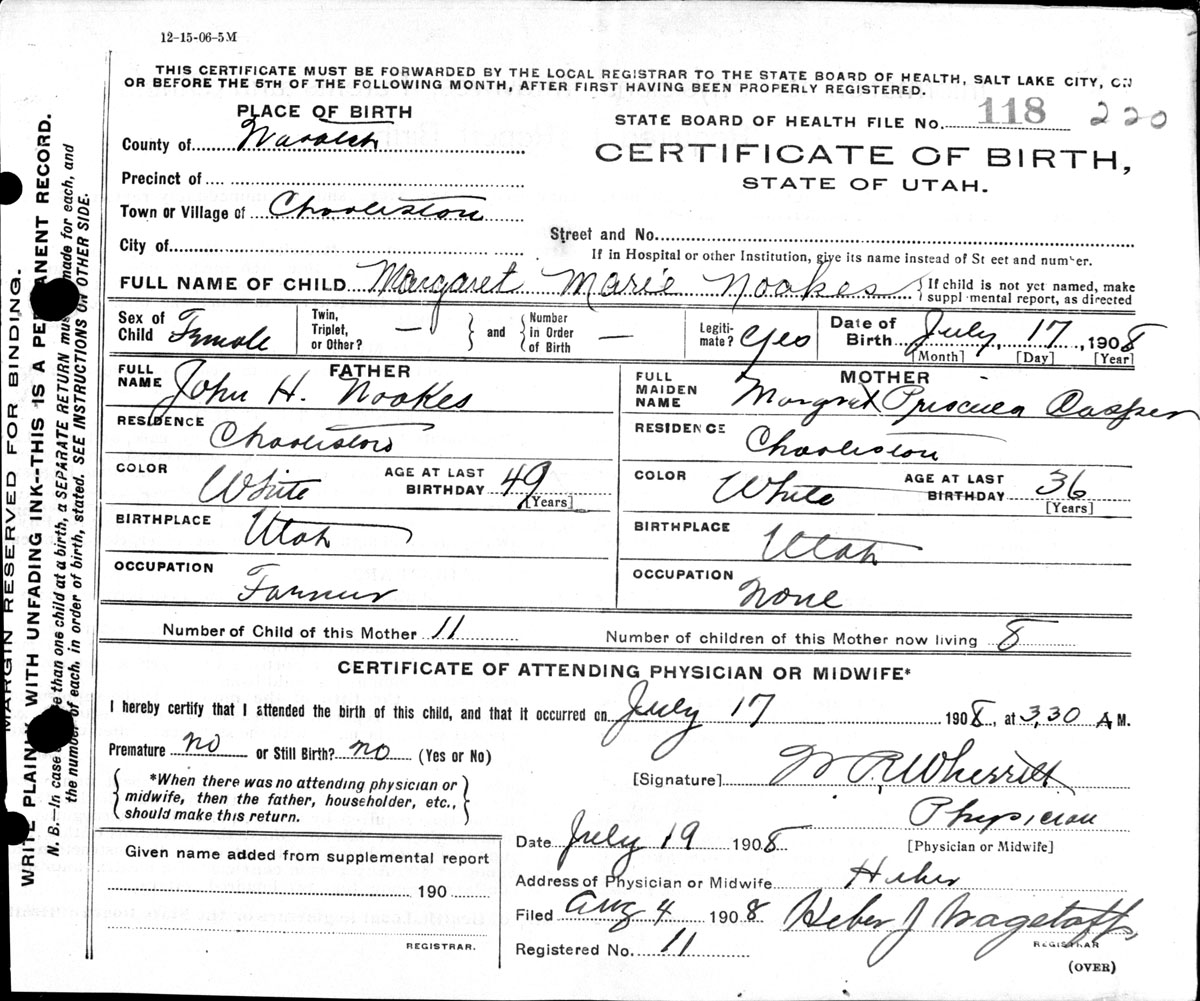 12-15-06-5M
THIS CERTIFICATE MUST BE FORWARDED BY THE LOCAL REGISTRAR TO THE STATE BOARD OF HEALTH, SALT LAKE CITY, ON
OR BEFORE THE 5TH OF THE FOLLOWING MONTH, AFTER FIRST HAVING BEEN PROPERLY REGISTERED.
PLACE OF BIRTH
STATE BOARD OF HEALTH FILE No. 118 220
County of Wasatch
CERTIFICATE OF BIRTH,
STATE OF UTAH.
Precinct of
Town or Village of Charleston
City of
Street and No.
If in Hospital or other Institution, give its name instead of Street and number.
FULL NAME OF CHILD Margaret Marie Nookes
If child is not yet named, make supplemental report, as directed
Sex of Child Female
Twin, Triplet, or Other? —
and
Number in Order of Birth —
Legitimate? Yes
Date of Birth July, 17, 1908
[Month] [Day] [Year]
FATHER
FULL NAME John H. Nookes
RESIDENCE Charleston
COLOR White
AGE AT LAST BIRTHDAY 49 [Years]
BIRTHPLACE Utah
OCCUPATION Farmer
MOTHER
FULL MAIDEN NAME Margret Priscilla Casper
RESIDENCE Charleston
COLOR White
AGE AT LAST BIRTHDAY 36 [Years]
BIRTHPLACE Utah
OCCUPATION None
Number of Child of this Mother 11
Number of children of this Mother now living 8
CERTIFICATE OF ATTENDING PHYSICIAN OR MIDWIFE*
I hereby certify that I attended the birth of this child, and that it occurred on July 17 1908, at 3,30 A M.
Premature no or Still Birth? no (Yes or No)
*When there was no attending physician or
midwife, then the father, householder, etc.,
should make this return.
[Signature] W R Wherritt
Physician
[Physician or Midwife]
Date July 19 1908
Given name added from supplemental report
190
REGISTRAR.
Address of Physician or Midwife Heber
Filed Aug 4 1908 Heber J Wagstaff
REGISTRAR
Registered No. 11
(OVER)
MARGIN RESERVED FOR BINDING.
WRITE PLAINLY WITH UNFADING INK--THIS IS A PERMANENT RECORD.
N. B.—In case of more than one child at a birth, a SEPARATE RETURN must be made for each, and
the number of each, in order of birth, stated. SEE INSTRUCTIONS ON OTHER SIDE.